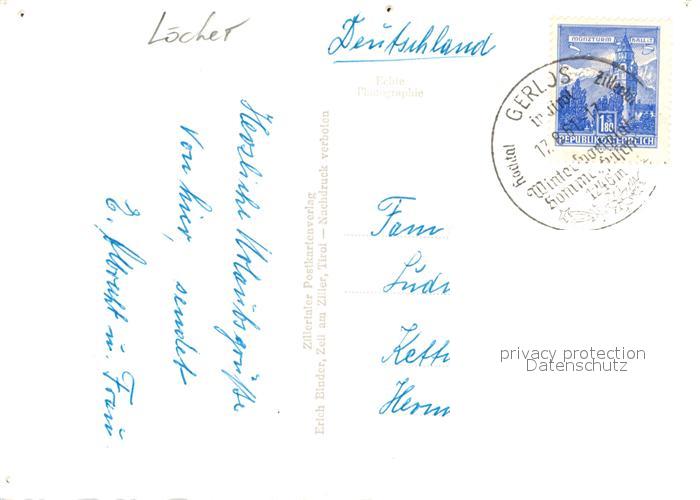 Löcher
Deutschland
Echte
Photographie
MÜNZTURM HALL i. T.
1.80
REPUBLIK ÖSTERREICH
GERLOS
in Tirol
17.8.61-17
Hochtal
Wintersportplatz
Sommerfrische
1246m
Herzliche Urlaubsgrüße
von hier, sendet
E. Albrecht u. Frau.
Zillertaler Postkartenverlag
Erich Binder, Zell am Ziller, Tirol — Nachdruck verboten
Fam
Ludi
Kett
Herm
privacy protection
Datenschutz